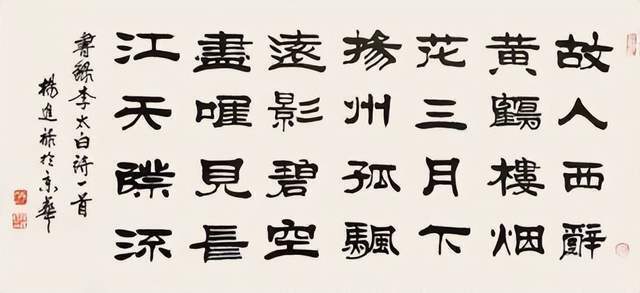 故人西辭
黃鶴樓烟
花三月下
揚州孤颿
遠影碧空
盡唯見長
江天際流
書錄李太白詩一首
楊進祿於京華